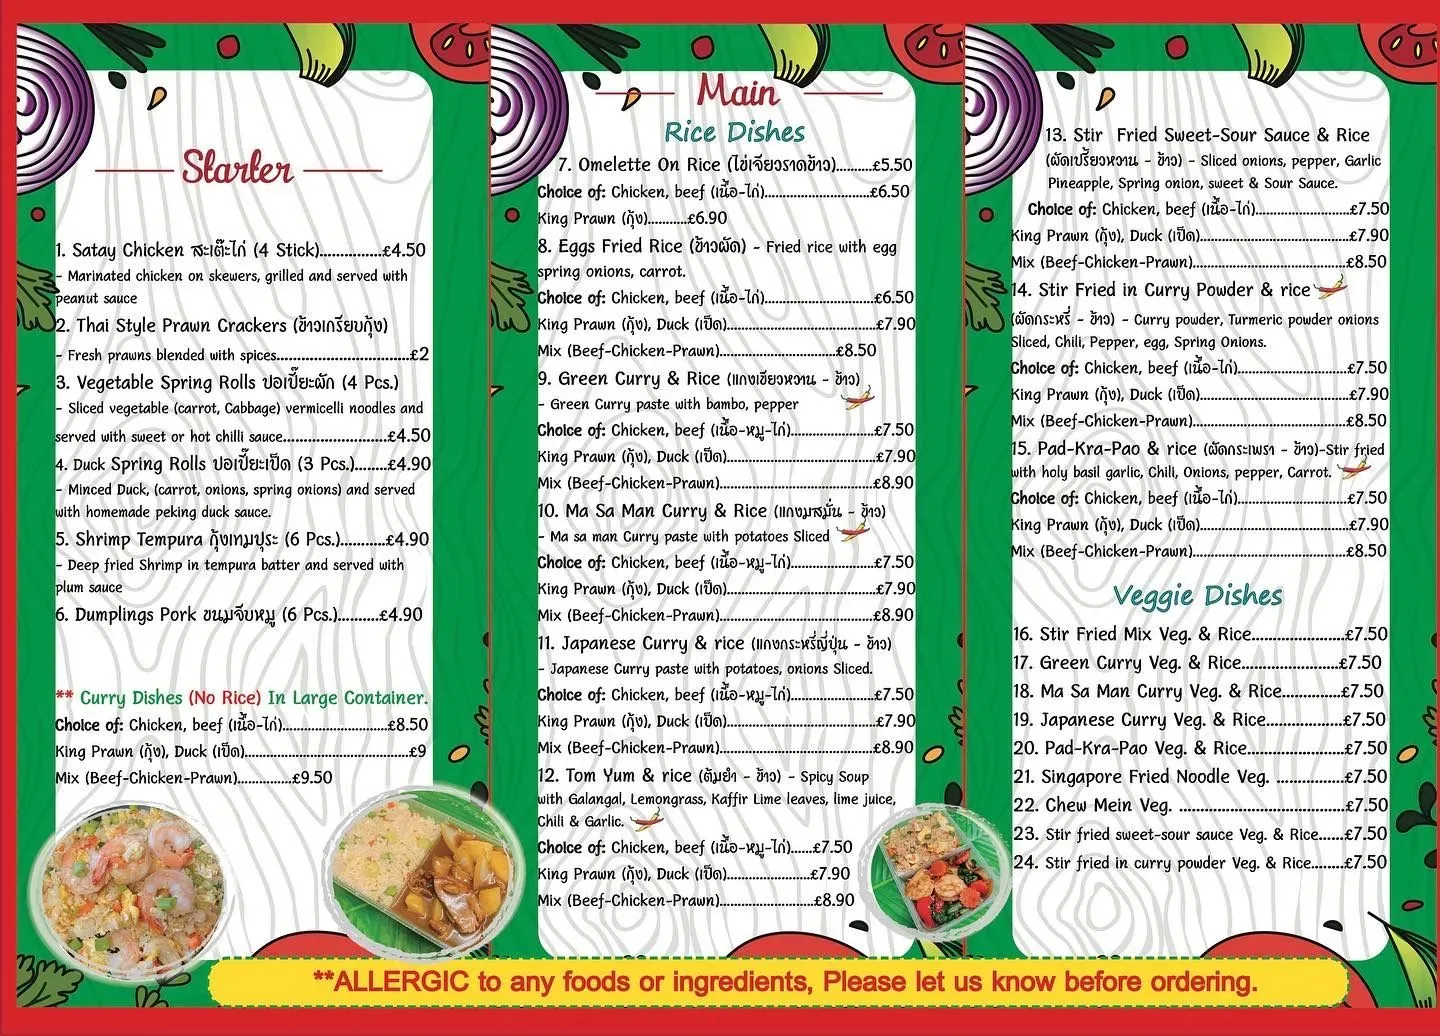 Starter
1. Satay Chicken สะเต๊ะไก่ (4 Stick)...............£4.50
- Marinated chicken on skewers, grilled and served with
peanut sauce
2. Thai Style Prawn Crackers (ข้าวเกรียบกุ้ง)
- Fresh prawns blended with spices................................£2
3. Vegetable Spring Rolls ปอเปี๊ยะผัก (4 Pcs.)
- Sliced vegetable (carrot, Cabbage) vermicelli noodles and
served with sweet or hot chilli sauce.........................£4.50
4. Duck Spring Rolls ปอเปี๊ยะเป็ด (3 Pcs.)........£4.90
- Minced Duck, (carrot, onions, spring onions) and served
with homemade peking duck sauce.
5. Shrimp Tempura กุ้งเทมปุระ (6 Pcs.)...........£4.90
- Deep fried Shrimp in tempura batter and served with
plum sauce
6. Dumplings Pork ขนมจีบหมู (6 Pcs.)..........£4.90
** Curry Dishes (No Rice) In Large Container.
Choice of: Chicken, beef (เนื้อ-ไก่).........................£8.50
King Prawn (กุ้ง), Duck (เป็ด).......................................£9
Mix (Beef-Chicken-Prawn).............£9.50
Main
Rice Dishes
7. Omelette On Rice (ไข่เจียวราดข้าว).........£5.50
Choice of: Chicken, beef (เนื้อ-ไก่).........................£6.50
King Prawn (กุ้ง)..........£6.90
8. Eggs Fried Rice (ข้าวผัด) - Fried rice with egg
spring onions, carrot.
Choice of: Chicken, beef (เนื้อ-ไก่)..........................£6.50
King Prawn (กุ้ง), Duck (เป็ด)...................................£7.90
Mix (Beef-Chicken-Prawn)...........................£8.50
9. Green Curry & Rice (แกงเขียวหวาน - ข้าว)
- Green Curry paste with bambo, pepper
Choice of: Chicken, beef (เนื้อ-หมู-ไก่)....................£7.50
King Prawn (กุ้ง), Duck (เป็ด)...................................£7.90
Mix (Beef-Chicken-Prawn)....................................£8.90
10. Ma Sa Man Curry & Rice (แกงมสมั่น - ข้าว)
- Ma sa man Curry paste with potatoes Sliced
Choice of: Chicken, beef (เนื้อ-หมู-ไก่)....................£7.50
King Prawn (กุ้ง), Duck (เป็ด)...................................£7.90
Mix (Beef-Chicken-Prawn)....................................£8.90
11. Japanese Curry & rice (แกงกระหรี่ญี่ปุ่น - ข้าว)
- Japanese Curry paste with potatoes, onions Sliced.
Choice of: Chicken, beef (เนื้อ-หมู-ไก่)....................£7.50
King Prawn (กุ้ง), Duck (เป็ด)...................................£7.90
Mix (Beef-Chicken-Prawn)....................................£8.90
12. Tom Yum & rice (ต้มยำ - ข้าว) - Spicy Soup
with Galangal, Lemongrass, Kaffir Lime leaves, lime juice,
Chili & Garlic.
Choice of: Chicken, beef (เนื้อ-หมู-ไก่)......£7.50
King Prawn (กุ้ง), Duck (เป็ด)....................£7.90
Mix (Beef-Chicken-Prawn).......................£8.90
13. Stir Fried Sweet-Sour Sauce & Rice
(ผัดเปรี้ยวหวาน - ข้าว) - Sliced onions, pepper, Garlic
Pineapple, Spring onion, sweet & Sour Sauce.
Choice of: Chicken, beef (เนื้อ-ไก่).......................£7.50
King Prawn (กุ้ง), Duck (เป็ด)...................................£7.90
Mix (Beef-Chicken-Prawn).....................................£8.50
14. Stir Fried in Curry Powder & rice
(ผัดกระหรี่ - ข้าว) - Curry powder, Turmeric powder onions
Sliced, Chili, Pepper, egg, Spring Onions.
Choice of: Chicken, beef (เนื้อ-ไก่)...........................£7.50
King Prawn (กุ้ง), Duck (เป็ด)...................................£7.90
Mix (Beef-Chicken-Prawn).....................................£8.50
15. Pad-Kra-Pao & rice (ผัดกระเพรา - ข้าว)-Stir fried
with holy basil garlic, Chili, Onions, pepper, Carrot.
Choice of: Chicken, beef (เนื้อ-ไก่)...........................£7.50
King Prawn (กุ้ง), Duck (เป็ด)...................................£7.90
Mix (Beef-Chicken-Prawn).....................................£8.50
Veggie Dishes
16. Stir Fried Mix Veg. & Rice......................£7.50
17. Green Curry Veg. & Rice.......................£7.50
18. Ma Sa Man Curry Veg. & Rice..............£7.50
19. Japanese Curry Veg. & Rice..................£7.50
20. Pad-Kra-Pao Veg. & Rice.......................£7.50
21. Singapore Fried Noodle Veg. ................£7.50
22. Chew Mein Veg. .......................................£7.50
23. Stir fried sweet-sour sauce Veg. & Rice......£7.50
24. Stir fried in curry powder Veg. & Rice........£7.50
**ALLERGIC to any foods or ingredients, Please let us know before ordering.